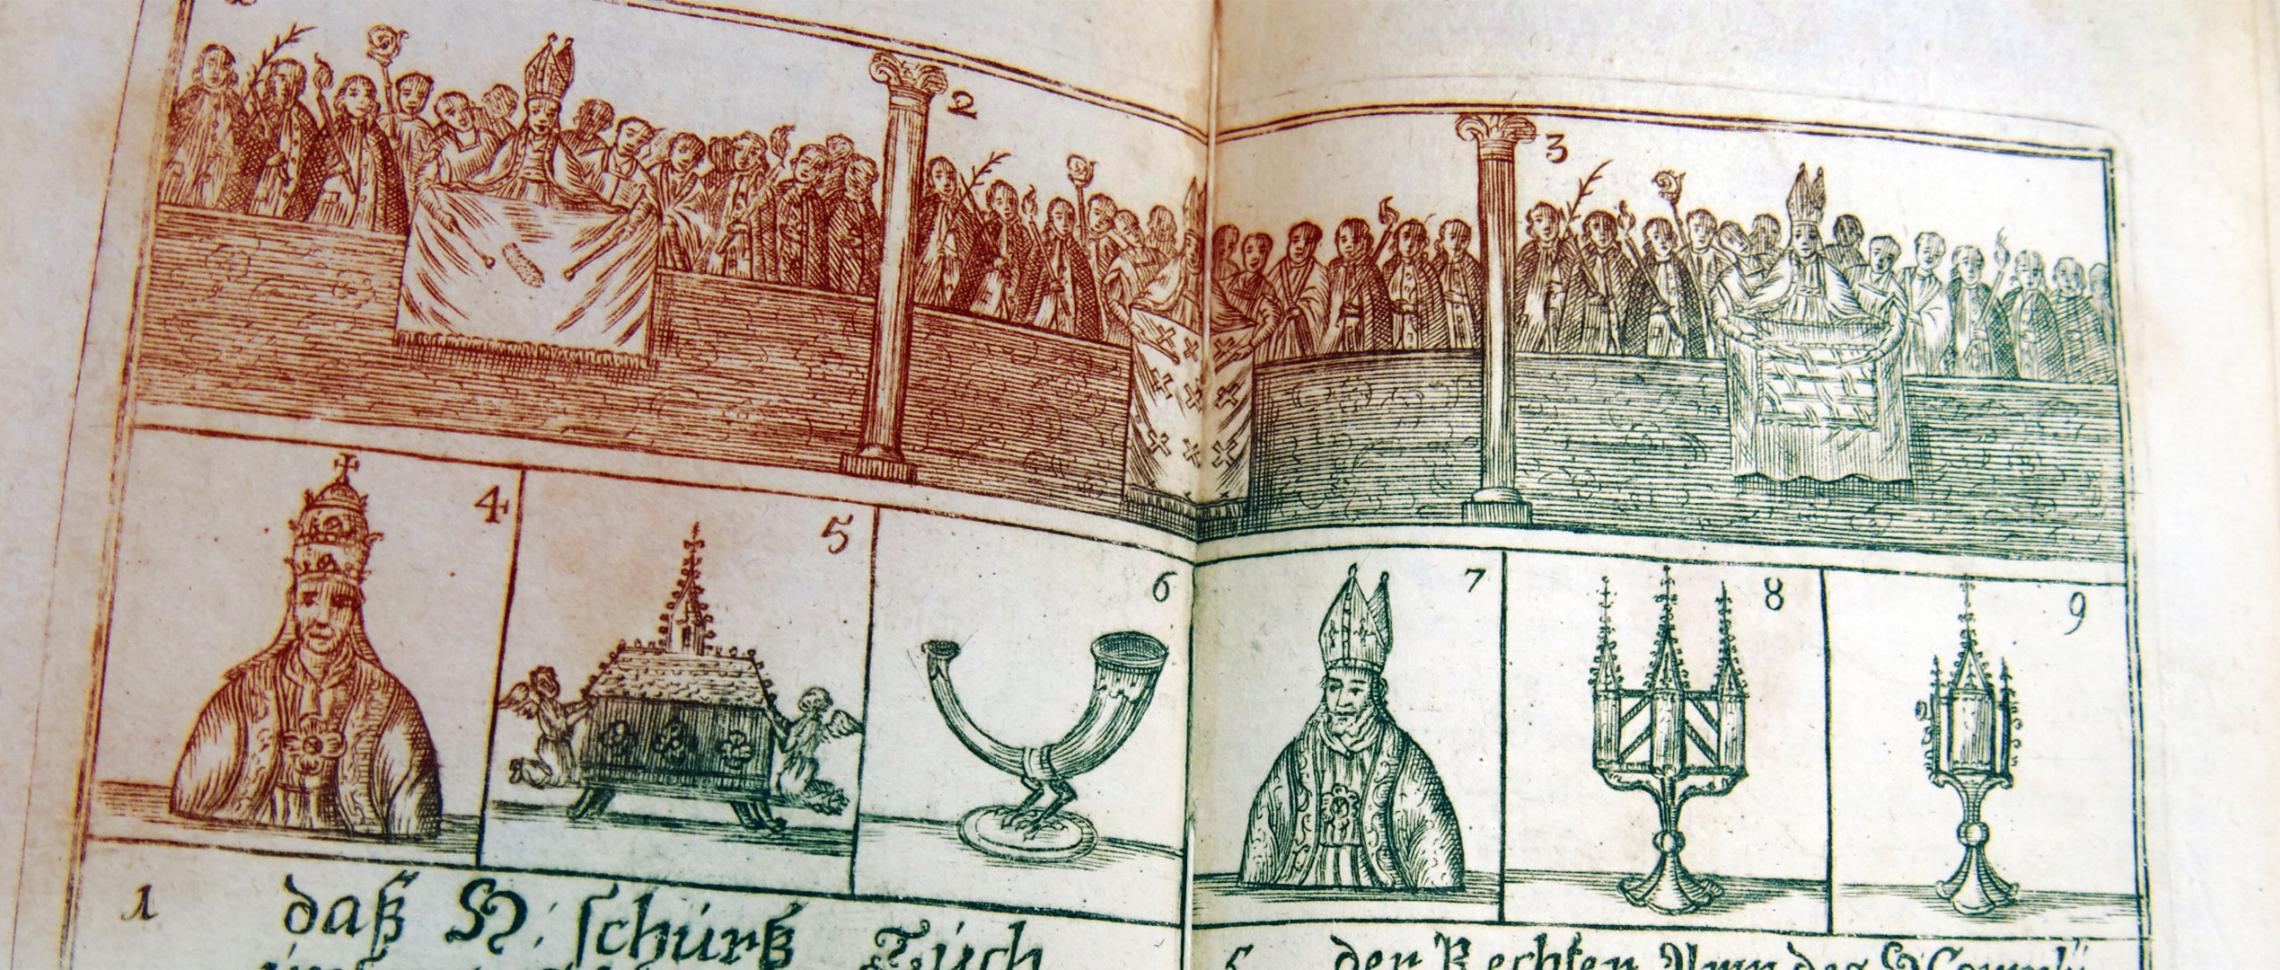 2
3
4
5
6
7
8
9
1 daß H: schürtz Tuch
5 der Rechten Arm des H Cornelÿ